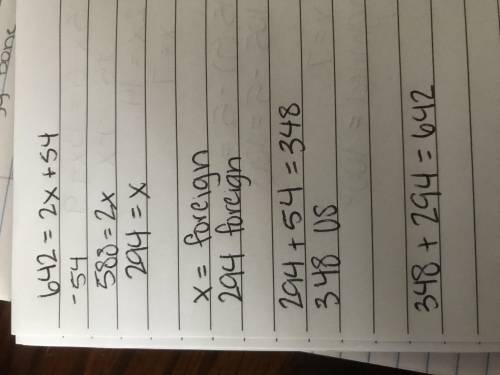 642 = 2x + 54
-54
588 = 2x
294 = x
x = foreign
294 foreign
294 + 54 = 348
348 US
348 + 294 = 642